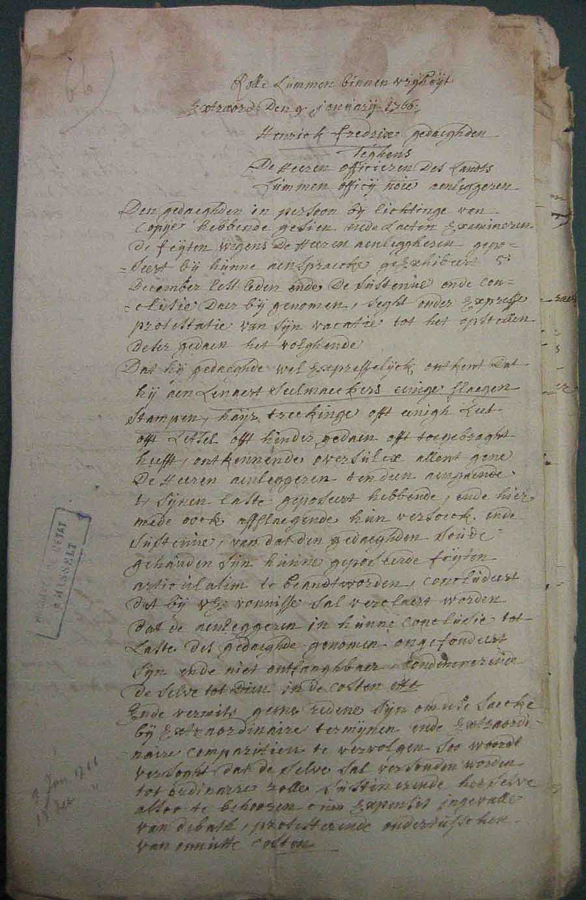 Rolle Lummen binnen vryheijt
Extraord. Den 9 january 1766
Henrick fredrix gedaeghden
Teghens
De Heeren officieren Des Landts
Lummen officij noie aenleggeren
Den gedaeghden in persoon bij lichtinge van
Copije hebbende gesien ende Laeten Examineren
de feyten wegens De Heeren aenleggheren gepo=
=seert bij hunne aenspraecke geexhibeert 5
December lest leden ende De sustenue ende con=
=clusie Daer bij genomen, seght onder Expresse
protestatie van sijn vacatie tot het opstellen
Deser gedaen het volghende
Dat hij gedaeghde wel expresselijck ontkent Dat
hij aen Lenaert Seelmaeckers eenige slaegen
stampen, hayr treckinge oft einigh Leet
oft Letsel oft hinder gedaen oft toegebraght
heeft, ontkennende oversulcx allent gene
De Heeren aenleggeren ten dien aengaende
t' sijnen laste geposeert hebbende, ende hier
mede oock afslaegende hun versoeck ende
sustenue, van dat den gedaeghden soude
gehauden sijn hunne geposeerde feyten
articulatim te beandtworden, concludeert
dat bij vonnisse sal verclaert worden
dat de aenleggeren in hunne conclusie tot
Laste des gedaeghde genomen ongefondeert
sijn ende niet ontfanghbaer, condemnerende
de selve tot dien in de costen
Ende vermits geene redene sijn om dese saecke
bij Extraordinaire termijnen ende Extraordi-
naire comparitien te vervolgen soo woordt
versoght dat de selve sal versonden worden
tot ordinaire rolle, sustinerende het selve
alsoo te behooren cum Expensis ingevalle
van debath, protesterende ondertusschen
van onnutte costen
9 Jan 1766
HASSELT